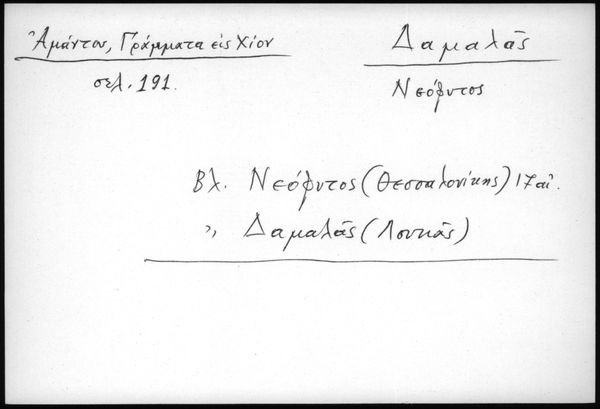 Ἀμάντου, Γράμματα εἰς Χίον
σελ. 191.
Δαμαλᾶς
Νεόφυτος
Βλ. Νεόφυτος (Θεσσαλονίκης) 17 αἰ.
,, Δαμαλᾶς (Λουκᾶς)